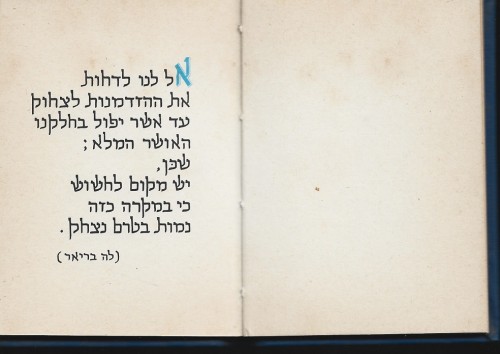 אל לנו לדחות
את ההזדמנות לצחוק
עד אשר יפול בחלקנו
האושר המלא;
שכן,
יש מקום לחשוש
כי במקרה כזה
נמות בטרם נצחק.
(לה בריאר)